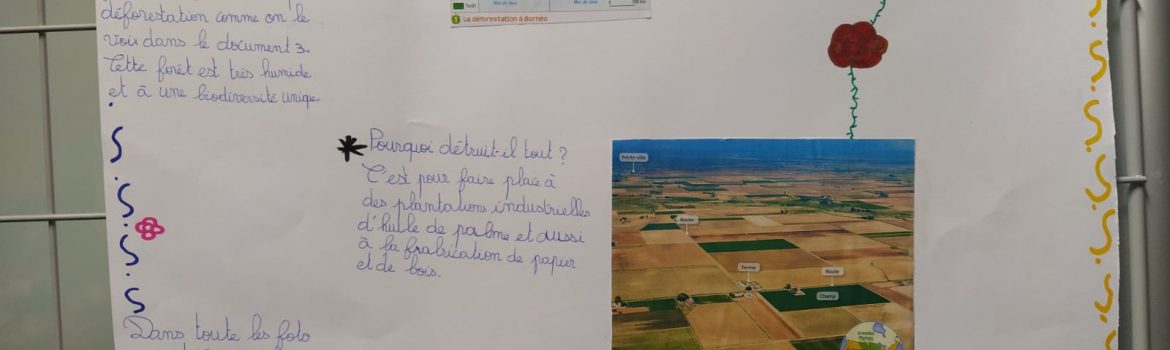 déforestation comme on le
voir dans le document 3.
Cette forêt est très humide
et à une biodiversité unique.
forêt
Mer de Java
Mer de Java
1 La déforestation à Bornéo
Pourquoi détruit-il tout ?
C'est pour faire place à
des plantations industrielles
d'huile de palme et aussi
à la frabrication de papier
et de bois.
Petite ville
Route
Ferme
Route
Champ
Dans toute les foto